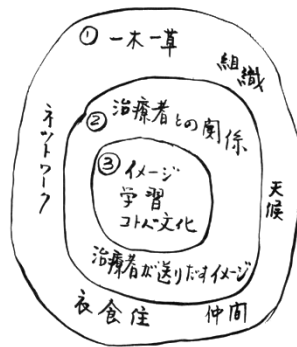 ① 一木一草
組織
ネットワーク
② 治療者との関係
③ イメージ
学習
コトバ文化
天候
治療者が送りだすイメージ
衣食住
仲間